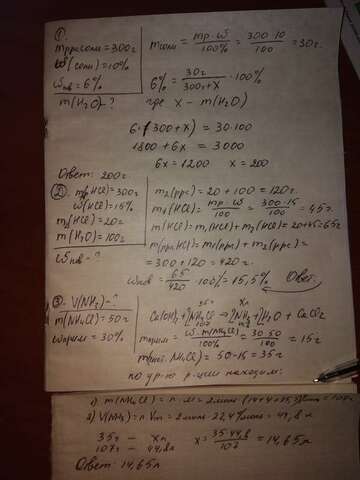 ①
mрра соли = 300г
ω(соли) = 10%
ωпв = 6%
m(H₂O) - ?
mсоли = mр·ω / 100% = 300·10 / 100 = 30г.
6% = 30г / 300г+X · 100%
где X - m(H₂O)
6·(300+x) = 30·100
1800 + 6x = 3000
6x = 1200 x = 200
Ответ: 200г
②. m₁рHCl = 300г
ω(HCl) = 15%
m₂(HCl) = 20г
m(H₂O) = 100г
ωнов - ?
m₂(ррс) = 20 + 100 = 120г.
m₁(HCl) = mр·ω / 100 = 300·15 / 100 = 45г.
m(HCl) = m₁(HCl) + m₂(HCl) = 20+45=65г
m(рраHCl) = m₁(ррс) + m₂(ррс) =
= 300 + 120 = 420г.
ωнов = 65 / 420 · 100% = 15,5% Ответ.
③. V(NH₃) - ?
m(NH₄Cl) = 50г
ωприм = 30%
35г xл
Ca(OH)₂ + 2NH₄Cl → 2NH₃ + 2H₂O + CaCl₂
107г
mприм = ω·m(NH₄Cl) / 100% = 30·50 / 100 = 15г
mчист. NH₄Cl = 50 - 15 = 35г
по ур-ю р-ции находим:
1) m(NH₄Cl) = n·M = 2моль
2) V(NH₃) = n·Vm = 2моль·22,4л/моль = 44,8л
35г — xл
107г — 44,8л
x = 35·44,8 / 107 = 14,65л
Ответ: 14,65л